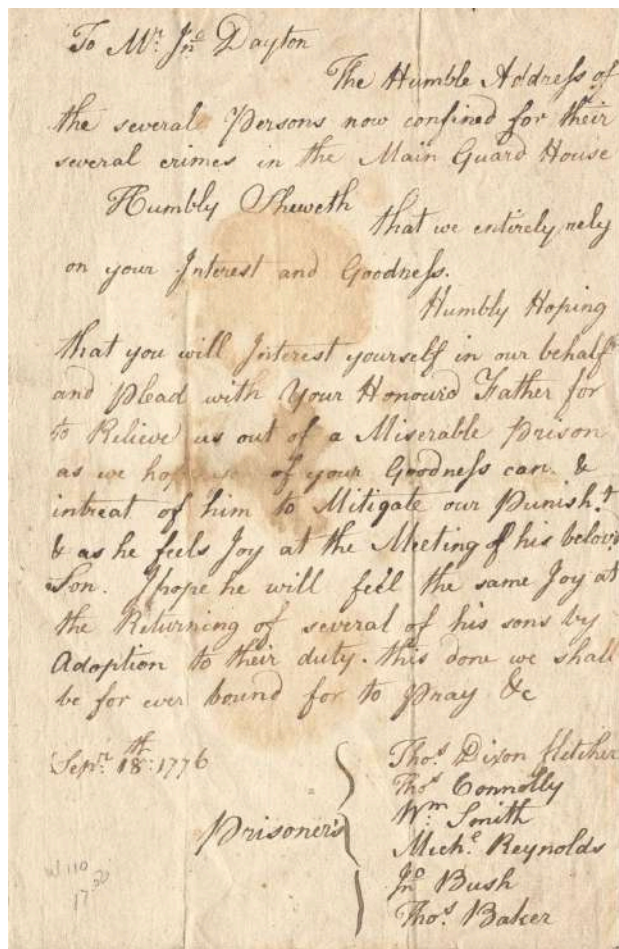 To Mr. Jno Dayton
The Humble Address of
the several Persons now confined for their
several crimes in the Main Guard House
Humbly Sheweth
that we entirely rely
on your Interest and Goodness.
Humbly Hoping
that you will Interest yourself in our behalf
and plead with Your Honour'd Father for
to Relieve us out of a Miserable Prison
as we of your Goodness can. &
intreat of him to Mitigate our Punish.t
& as he feels Joy at the Meeting of his belov'd
Son. I hope he will feel the same Joy at
the Returning of several of his sons by
Adoption to their duty. this done we shall
be for ever bound for to pray &c
Sepr. 18th: 1776
Prisoners
Thos. Dixon fletcher
Thos Connolly
Wm Smith
Michl. Reynolds
Jno Bush
Thos. Baker
W 110